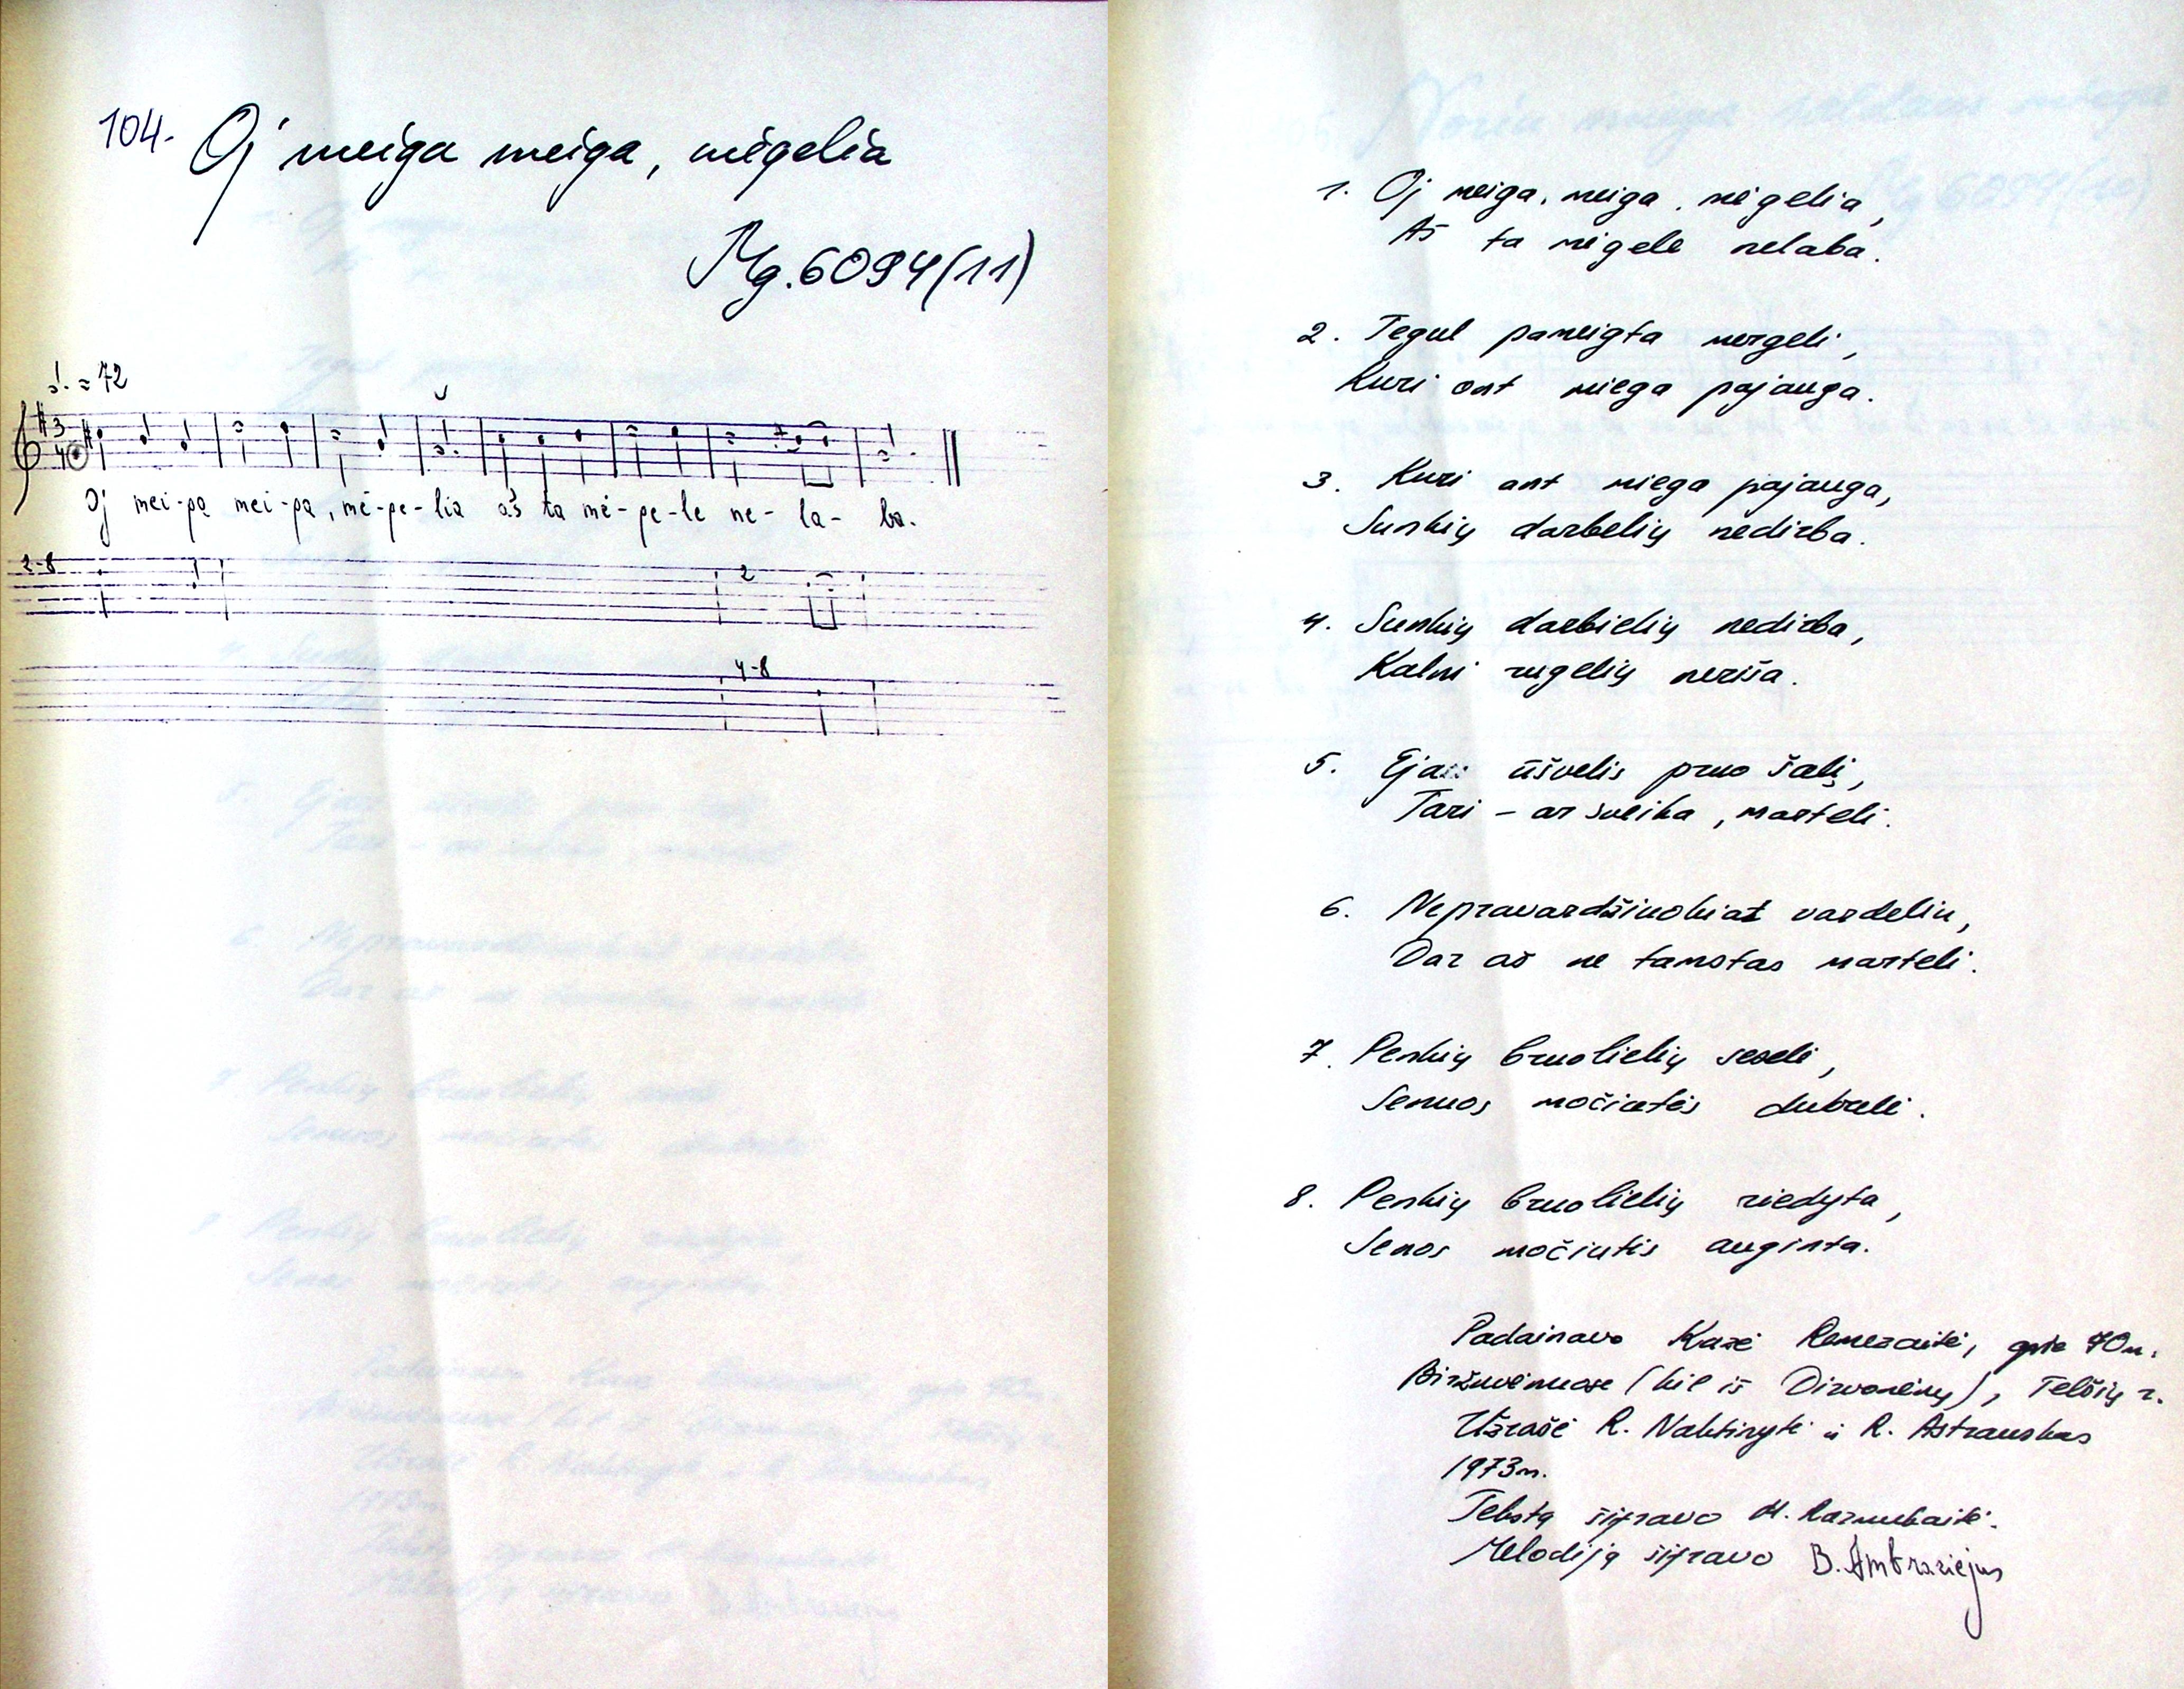 104. Oj meiga meiga, mėgelia
Mg. 6094(11)
♩. = 72
3
4
Oj mei-ga mei-ga, mė-ge-lia aš ta mė-ge-le ne-la-ba.
2-8
2
4-8
1. Oj meiga, meiga, mėgelia,
Aš ta mėgele nelaba.
2. Tegul pameigta mergeli,
Kuri ont miega pajauga.
3. Kuri ant miega pajauga,
Sunkių darbelių nedirba.
4. Sunkių darbielių nedirba,
Kalni rugelių neriša.
5. Ejas ūšvelis pruo šalį,
Tari – ar sveika, marteli.
6. Nepravardžinokiat vardeliu,
Dar aš ne tamstas marteli.
7. Penkių bruolielių seseli,
Senuos močiutės dukreli.
8. Penkių bruolielių riedyta,
Senos močiutis auginta.
Padainavo Kazė Remezaitė, apie 70 m.
Biržuvėnuose (kil. iš Dirvonėnų), Telšių r.
Užrašė R. Naktinytė ir R. Astrauskas
1973 m.
Tekstą šifravo M. Razmukaitė.
Melodiją šifravo B. Ambraziejus